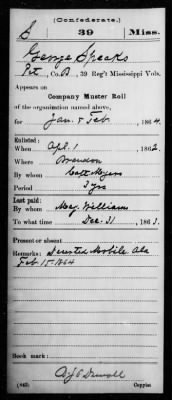 (Confederate.)
S 39 Miss.
George Speaks
Pvt, Co. B, 39 Reg't Mississippi Vols.
Appears on
Company Muster Roll
of the organization named above,
for Jan & Feb, 1864.
Enlisted:
When Apl. 1, 1862.
Where Brandon
By whom Capt. Myers
Period 3 yrs
Last paid:
By whom Maj. Williams
To what time Dec. 31, 1863.
Present or absent
Remarks: Deserted Mobile Ala
Feb 15 1864
Book mark:
(642) Copyist.